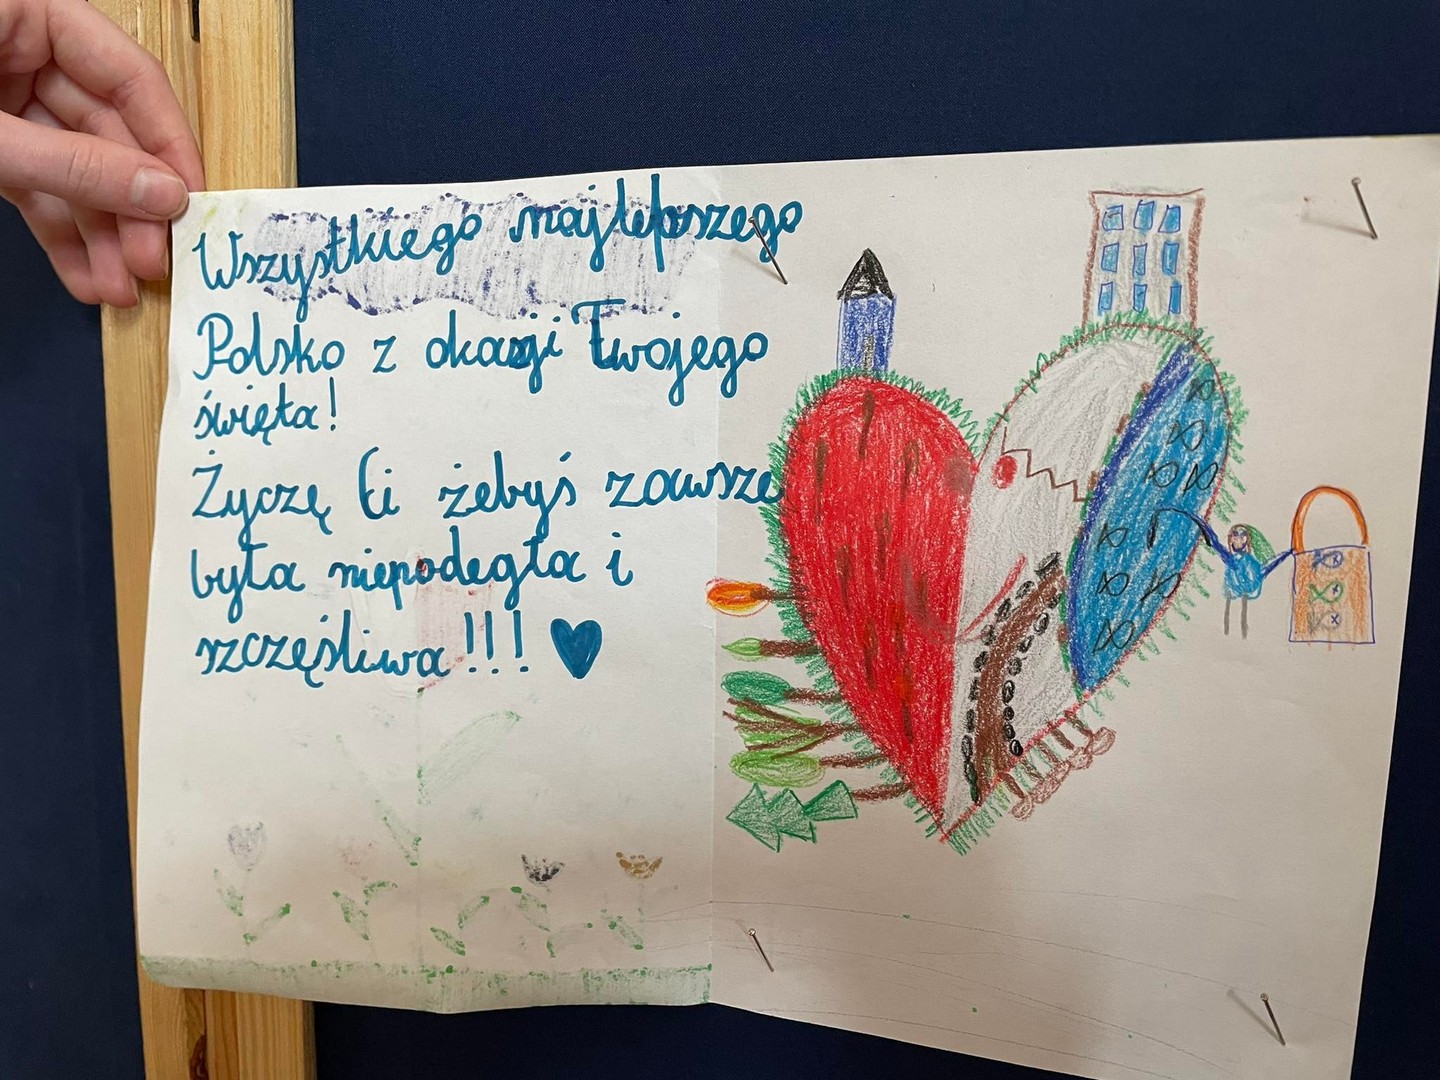 Wszystkiego najlepszego
Polsko z okazji Twojego
święta!
Życzę Ci żebyś zawsze
była niepodegła i
szczęśliwa!!!